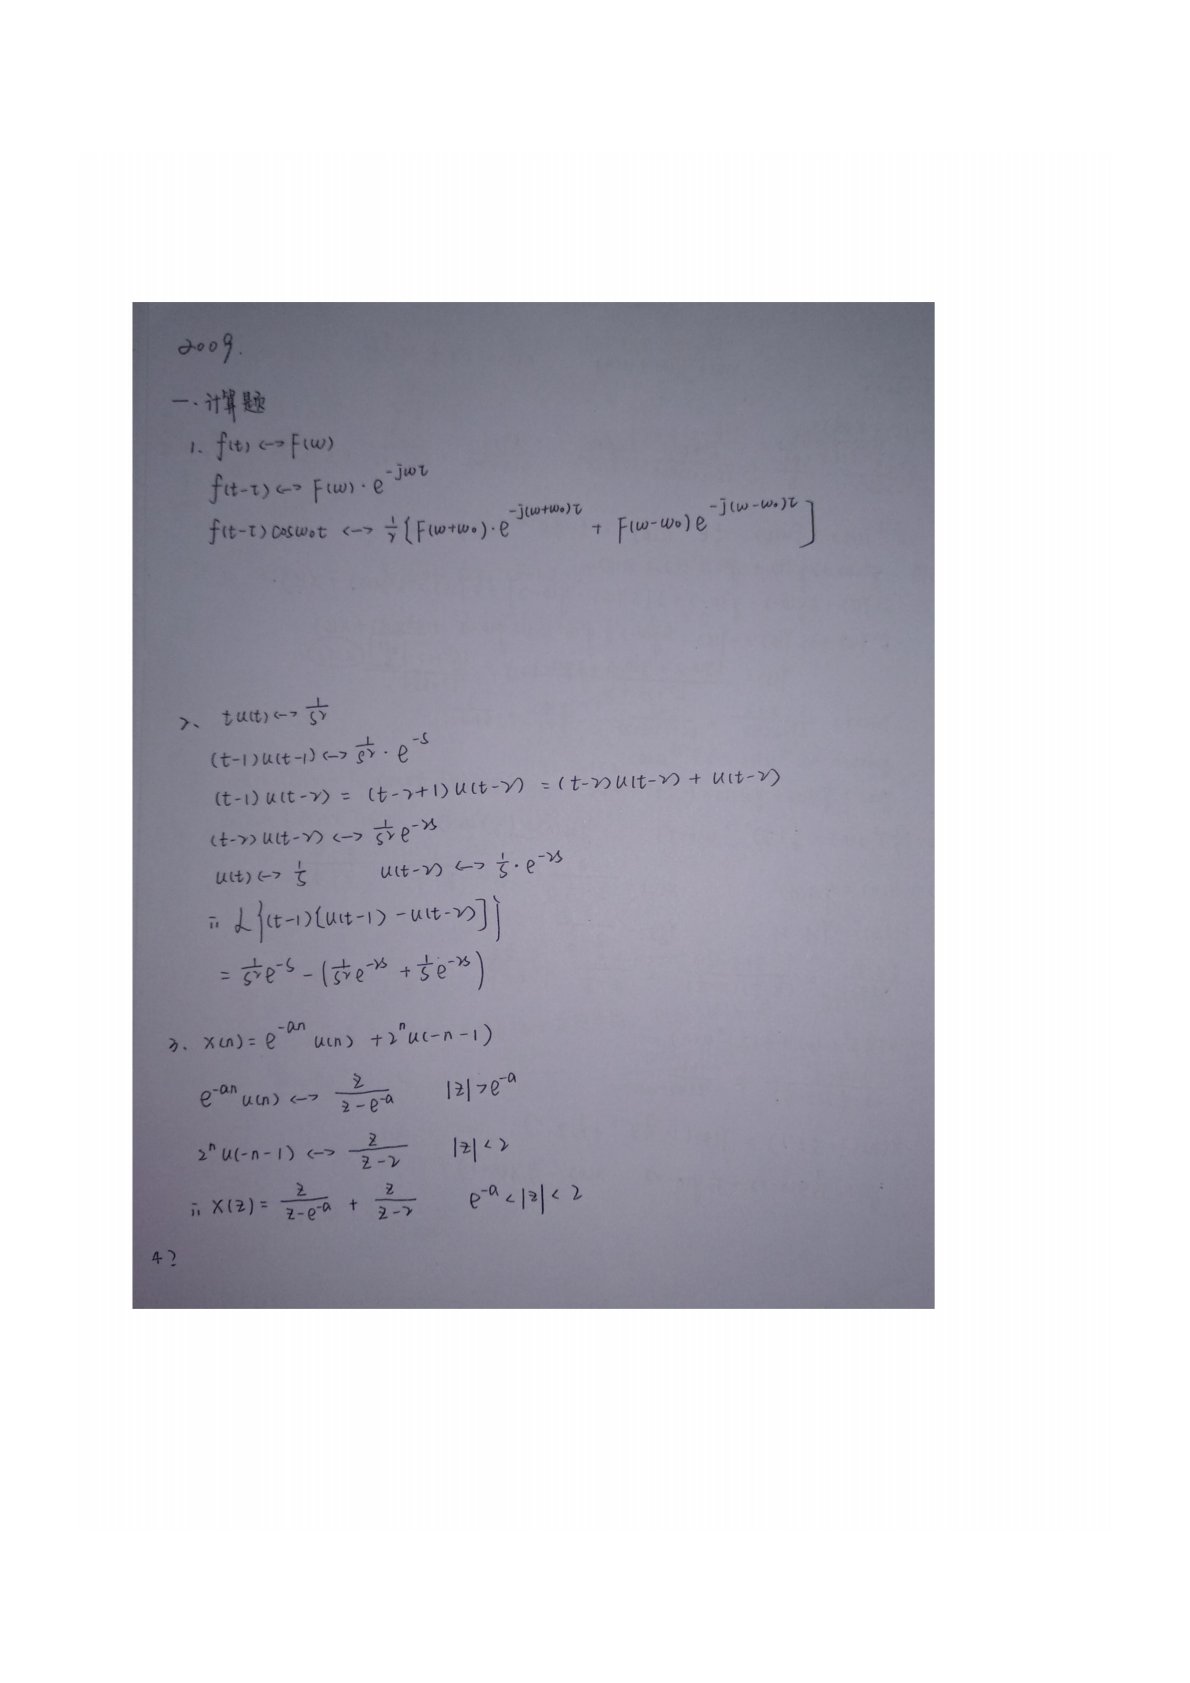 2009.
一、计算题
1. f(t) <-> F(ω)
f(t-τ) <-> F(ω)·e^{-jωτ}
f(t-τ)cosω₀t <-> 1/2 [F(ω+ω₀)·e^{-j(ω+ω₀)τ} + F(ω-ω₀)e^{-j(ω-ω₀)τ}]
2、 tu(t) <-> 1/s²
(t-1)u(t-1) <-> 1/s²·e^{-s}
(t-1)u(t-2) = (t-2+1)u(t-2) = (t-2)u(t-2) + u(t-2)
(t-2)u(t-2) <-> 1/s² e^{-2s}
u(t) <-> 1/s u(t-2) <-> 1/s·e^{-2s}
∴ L{(t-1)[u(t-1) - u(t-2)]}
= 1/s² e^{-s} - (1/s² e^{-2s} + 1/s e^{-2s})
3. x(n) = e^{-an} u(n) + 2^n u(-n-1)
e^{-an} u(n) <-> z/(z-e^{-a}) |z|>e^{-a}
2^n u(-n-1) <-> z/(z-2) |z|<2
∴ X(z) = z/(z-e^{-a}) + z/(z-2) e^{-a}<|z|<2
4?